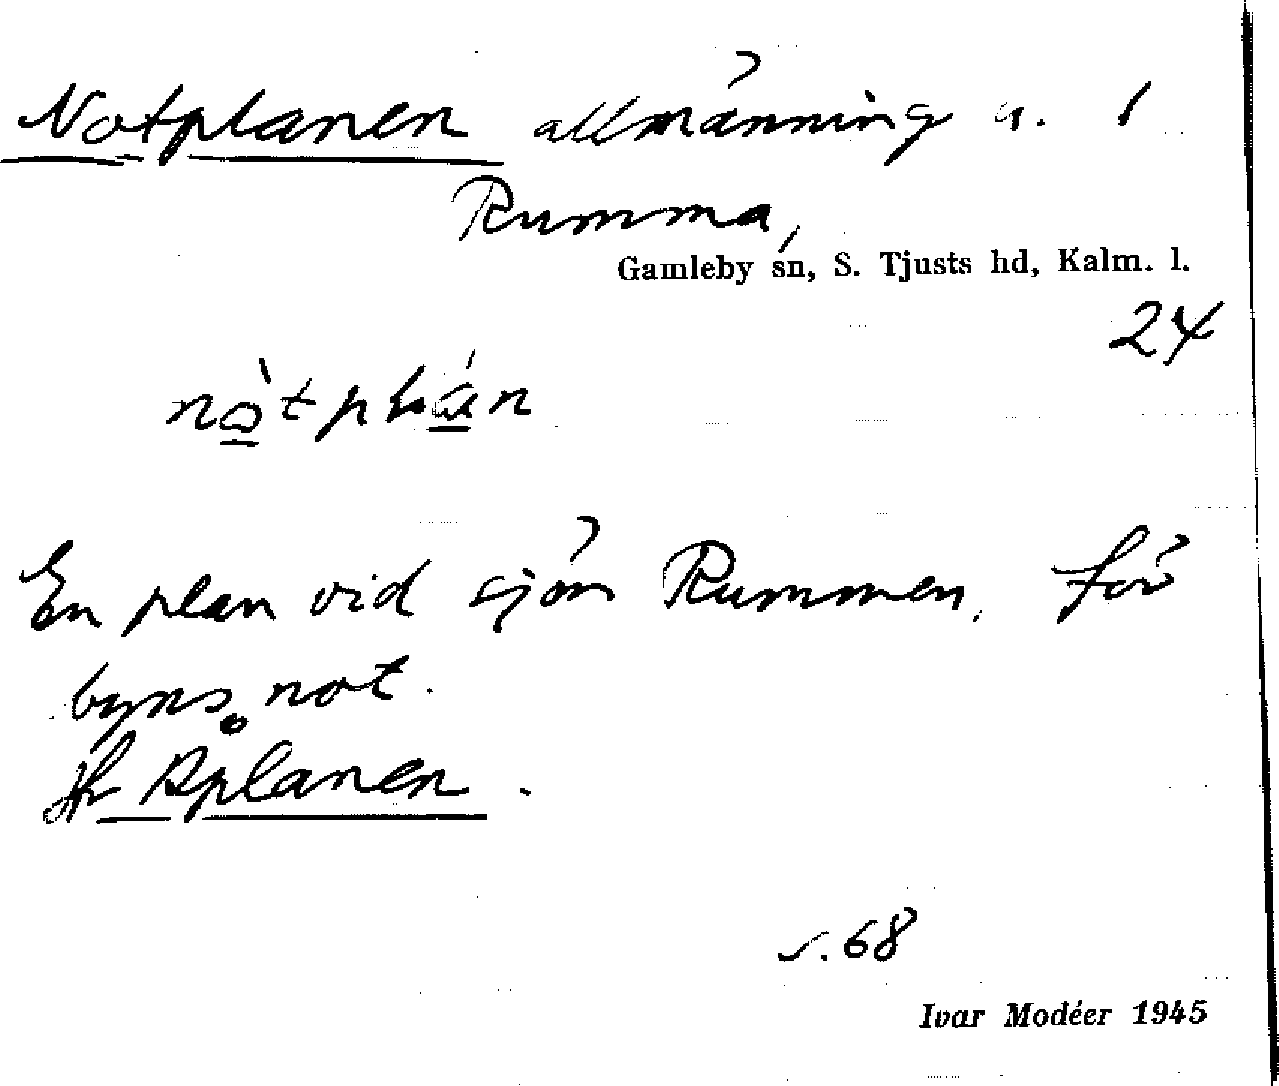 Notplanen allmänning u. 1
Rumma,
Gamleby sn, S. Tjusts hd, Kalm. l.
24
En plan vid sjön Rummen, för
byns not.
Jfr Åplanen.
s. 68
Ivar Modéer 1945